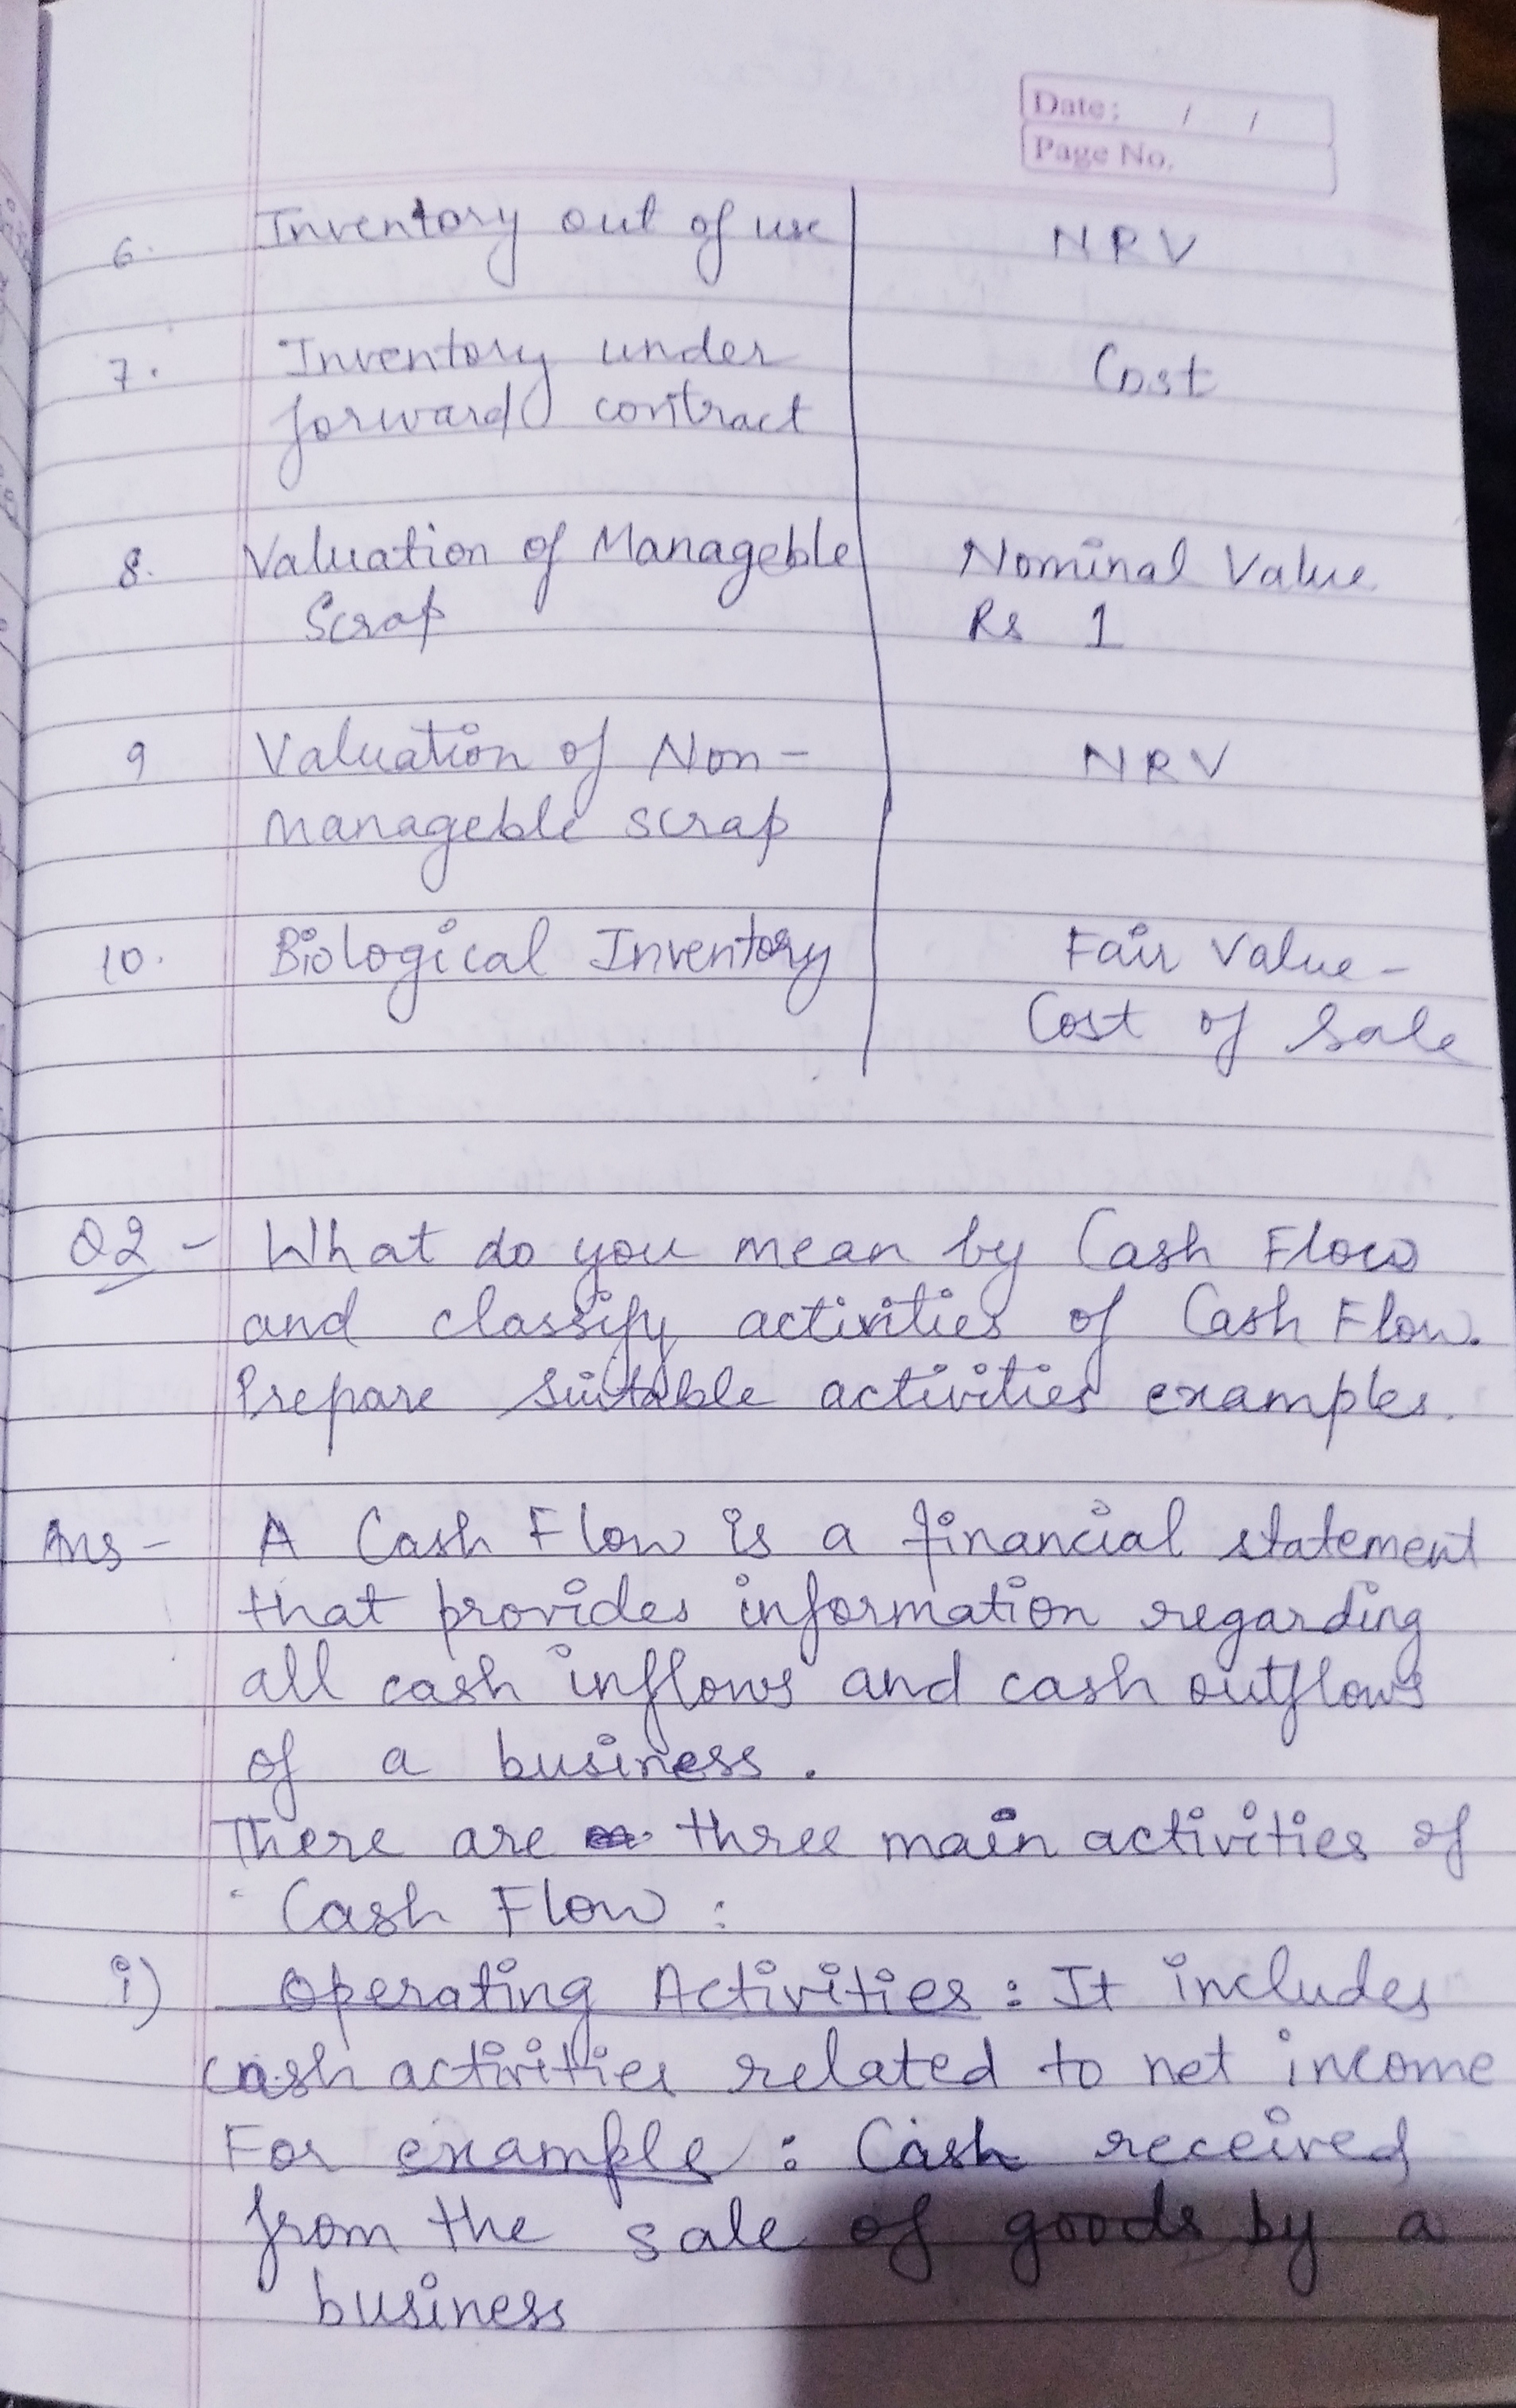 Date: / /
Page No.
6. Inventory out of use NRV
7. Inventory under Cost
forward contract
8. Valuation of Manageble Nominal Value
Scrap Rs 1
9 Valuation of Non- NRV
manageble scrap
10. Biological Inventory Fair Value-
Cost of Sale
Q2- What do you mean by Cash Flow
and classify activities of Cash Flow.
Prepare suitable activities examples.
Ans- A Cash Flow is a financial statement
that provides information regarding
all cash inflows and cash outflows
of a business.
There are three main activities of
Cash Flow :
i) Operating Activities : It includes
cash activities related to net income
For example : Cash received
from the sale of goods by a
business